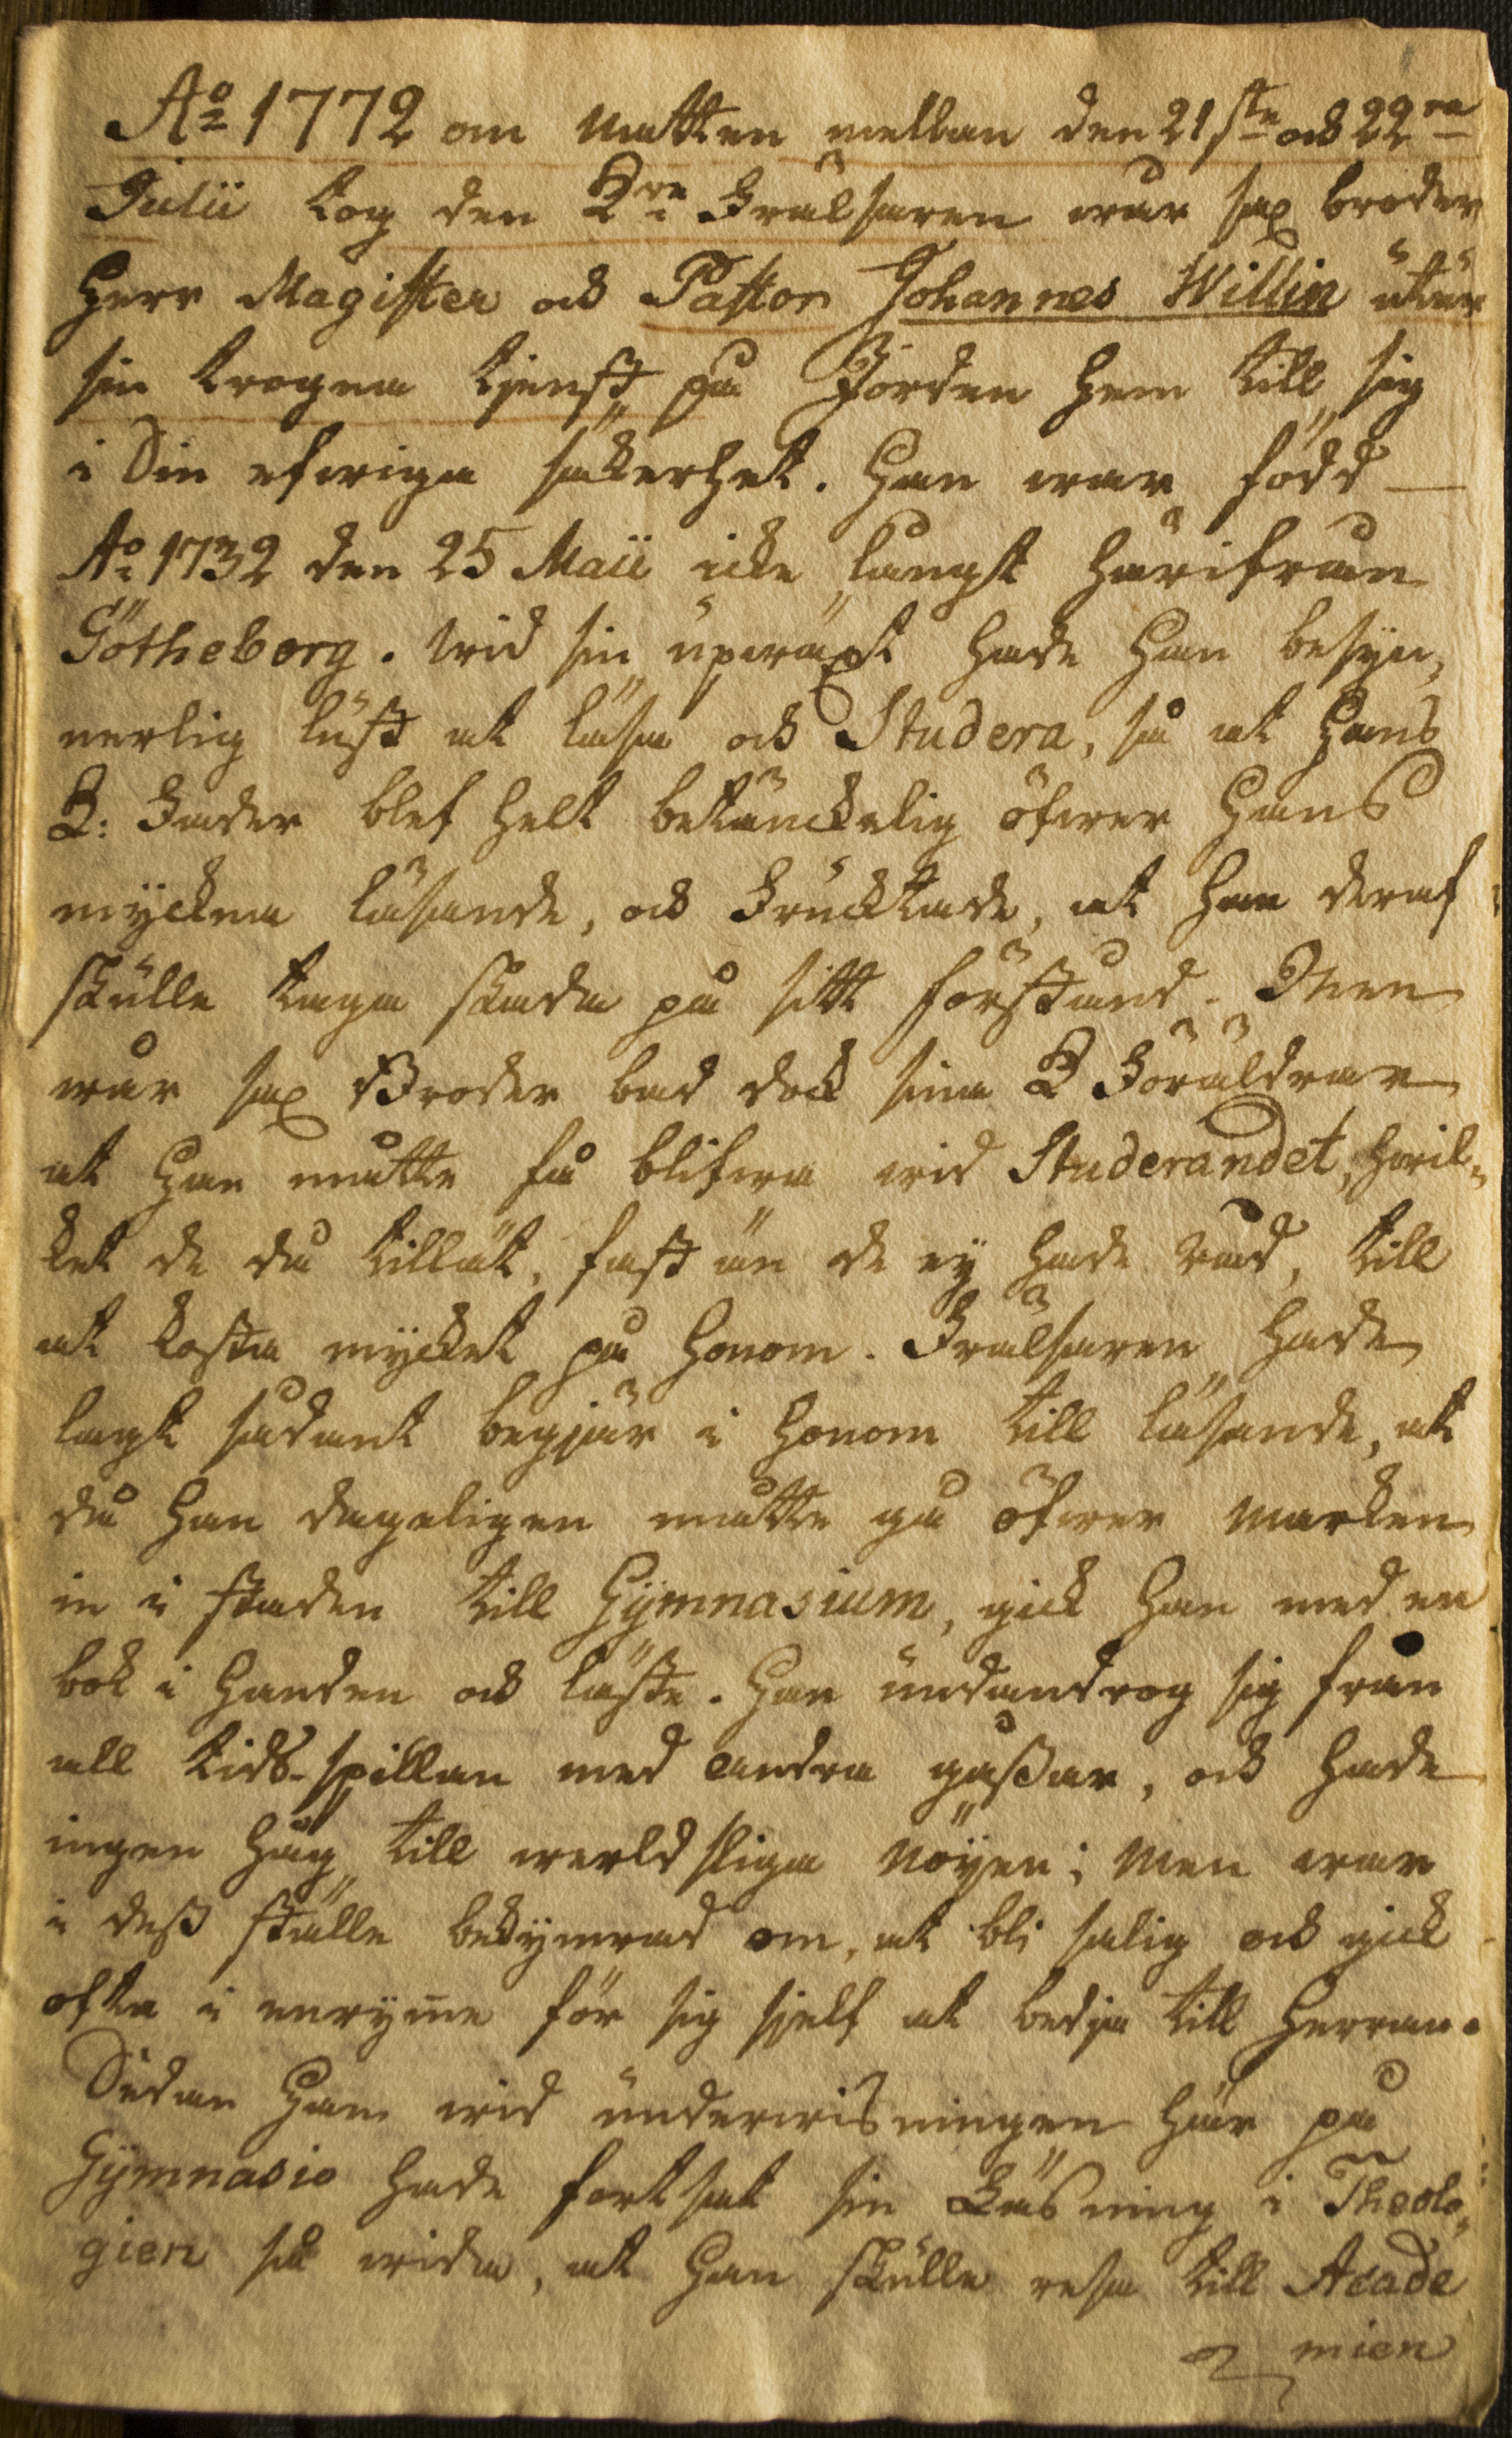 Ao 1772 om natten mellan den 21ste och 22ra
Julii tog den L:re Frälsaren wår sal broder
Herr Magister och Pastor Johannes Willin utur
sin trogna tjenst på Jorden hem till sig
i Sin ewiga säkerhet. Han war född
Ao 1732 den 25 Maii icke långt härifrån
Götheborg. Wid sin upwäxt hade Han besyn,,
nerlig lust at läsa och Studera, så at Hans
L: Fader blef helt betänckelig öfwer Hans
myckna läsande, och Fruchtade, at Han deraf
skulle taga skada på sitt förstånd. Men
wår sal Broder bad dock sina L Föräldrar
at Han måtte få blifwa wid Studerandet, hwil,,
ket de då tillät, fast än de ej hade råd, till
at kosta mycket på honom. Frälsaren hade
lagt sådant begjär i honom till läsande, at
då Han dageligen måtte gå öfwer marken
in i staden till Gymnasium, gick Han med en
bok i Handen och läste. Han undandrog sig från
all tids-spillan med andra gåssar, och hade
ingen håg till werldsliga nöyen; Men war
i dess ställe bekymrad om, at bli salig och gick
ofta i enrum för sig sjelf at bedja till Herran.
Sedan Han wid underwisningen här på
Gymnasio hade fortsat sin Läsning i Theolo,,
gien så wida, at Han skulle resa till Acade
mien